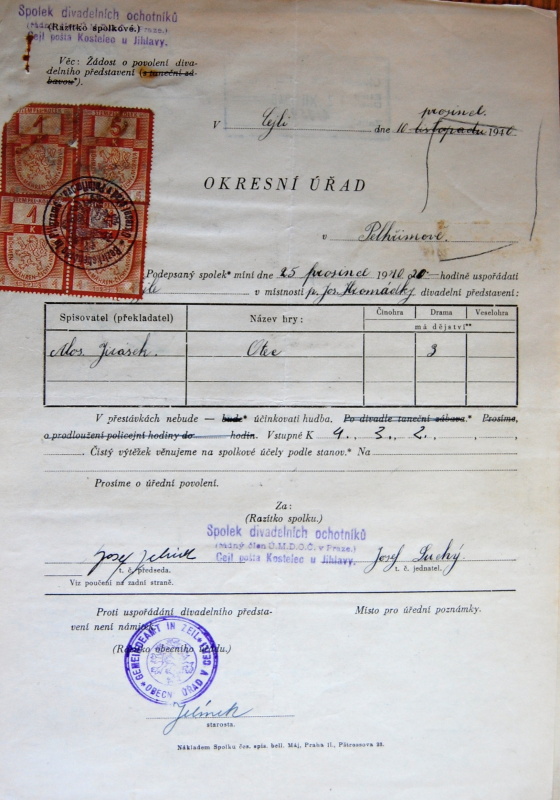 Spolek divadelních ochotníků
(řádný člen Ú.M.D.O.Č. v Praze.)
(Razítko spolkové.)
Cejl pošta Kostelec u Jihlavy.
Věc: Žádost o povolení diva-
delního představení (s taneční zá-
bavou*).
prosince
V Cejli dne 10 listopadu 1940
OKRESNÍ ÚŘAD
v Pelhřimově.
1
5
1
1
Podepsaný spolek* míní dne 25 prosince 1940. 20 hodině uspořádati
v místnosti p. Jos. Hromádky divadelní představení:
Spisovatel (překladatel) Název hry: Činohra Drama Veselohra
má dějství**
Alois Jirásek. Otec 3
V přestávkách nebude — bude* účinkovati hudba. Po divadle taneční zábava.* Prosíme,
o prodloužení policejní hodiny do hodin. Vstupné K 4. 3. 2.
Čistý výtěžek věnujeme na spolkové účely podle stanov.* Na
Prosíme o úřední povolení.
Za:
(Razítko spolku.)
Spolek divadelních ochotníků
(řádný člen Ú.M.D.O.Č. v Praze.)
Cejl pošta Kostelec u Jihlavy.
Josef Josef Suchý
t. č. předseda. t. č. jednatel.
Viz poučení na zadní straně.
Proti uspořádání divadelního předsta-
vení není námitek.
Místo pro úřední poznámky.
(Razítko obecního úřadu.)
GEMEINDEAMT IN ZEIL
OBECNÍ ÚŘAD V CEJLI
Jelínek
starosta.
Nákladem Spolku čes. spis. bell. Máj, Praha II., Pštrossova 23.